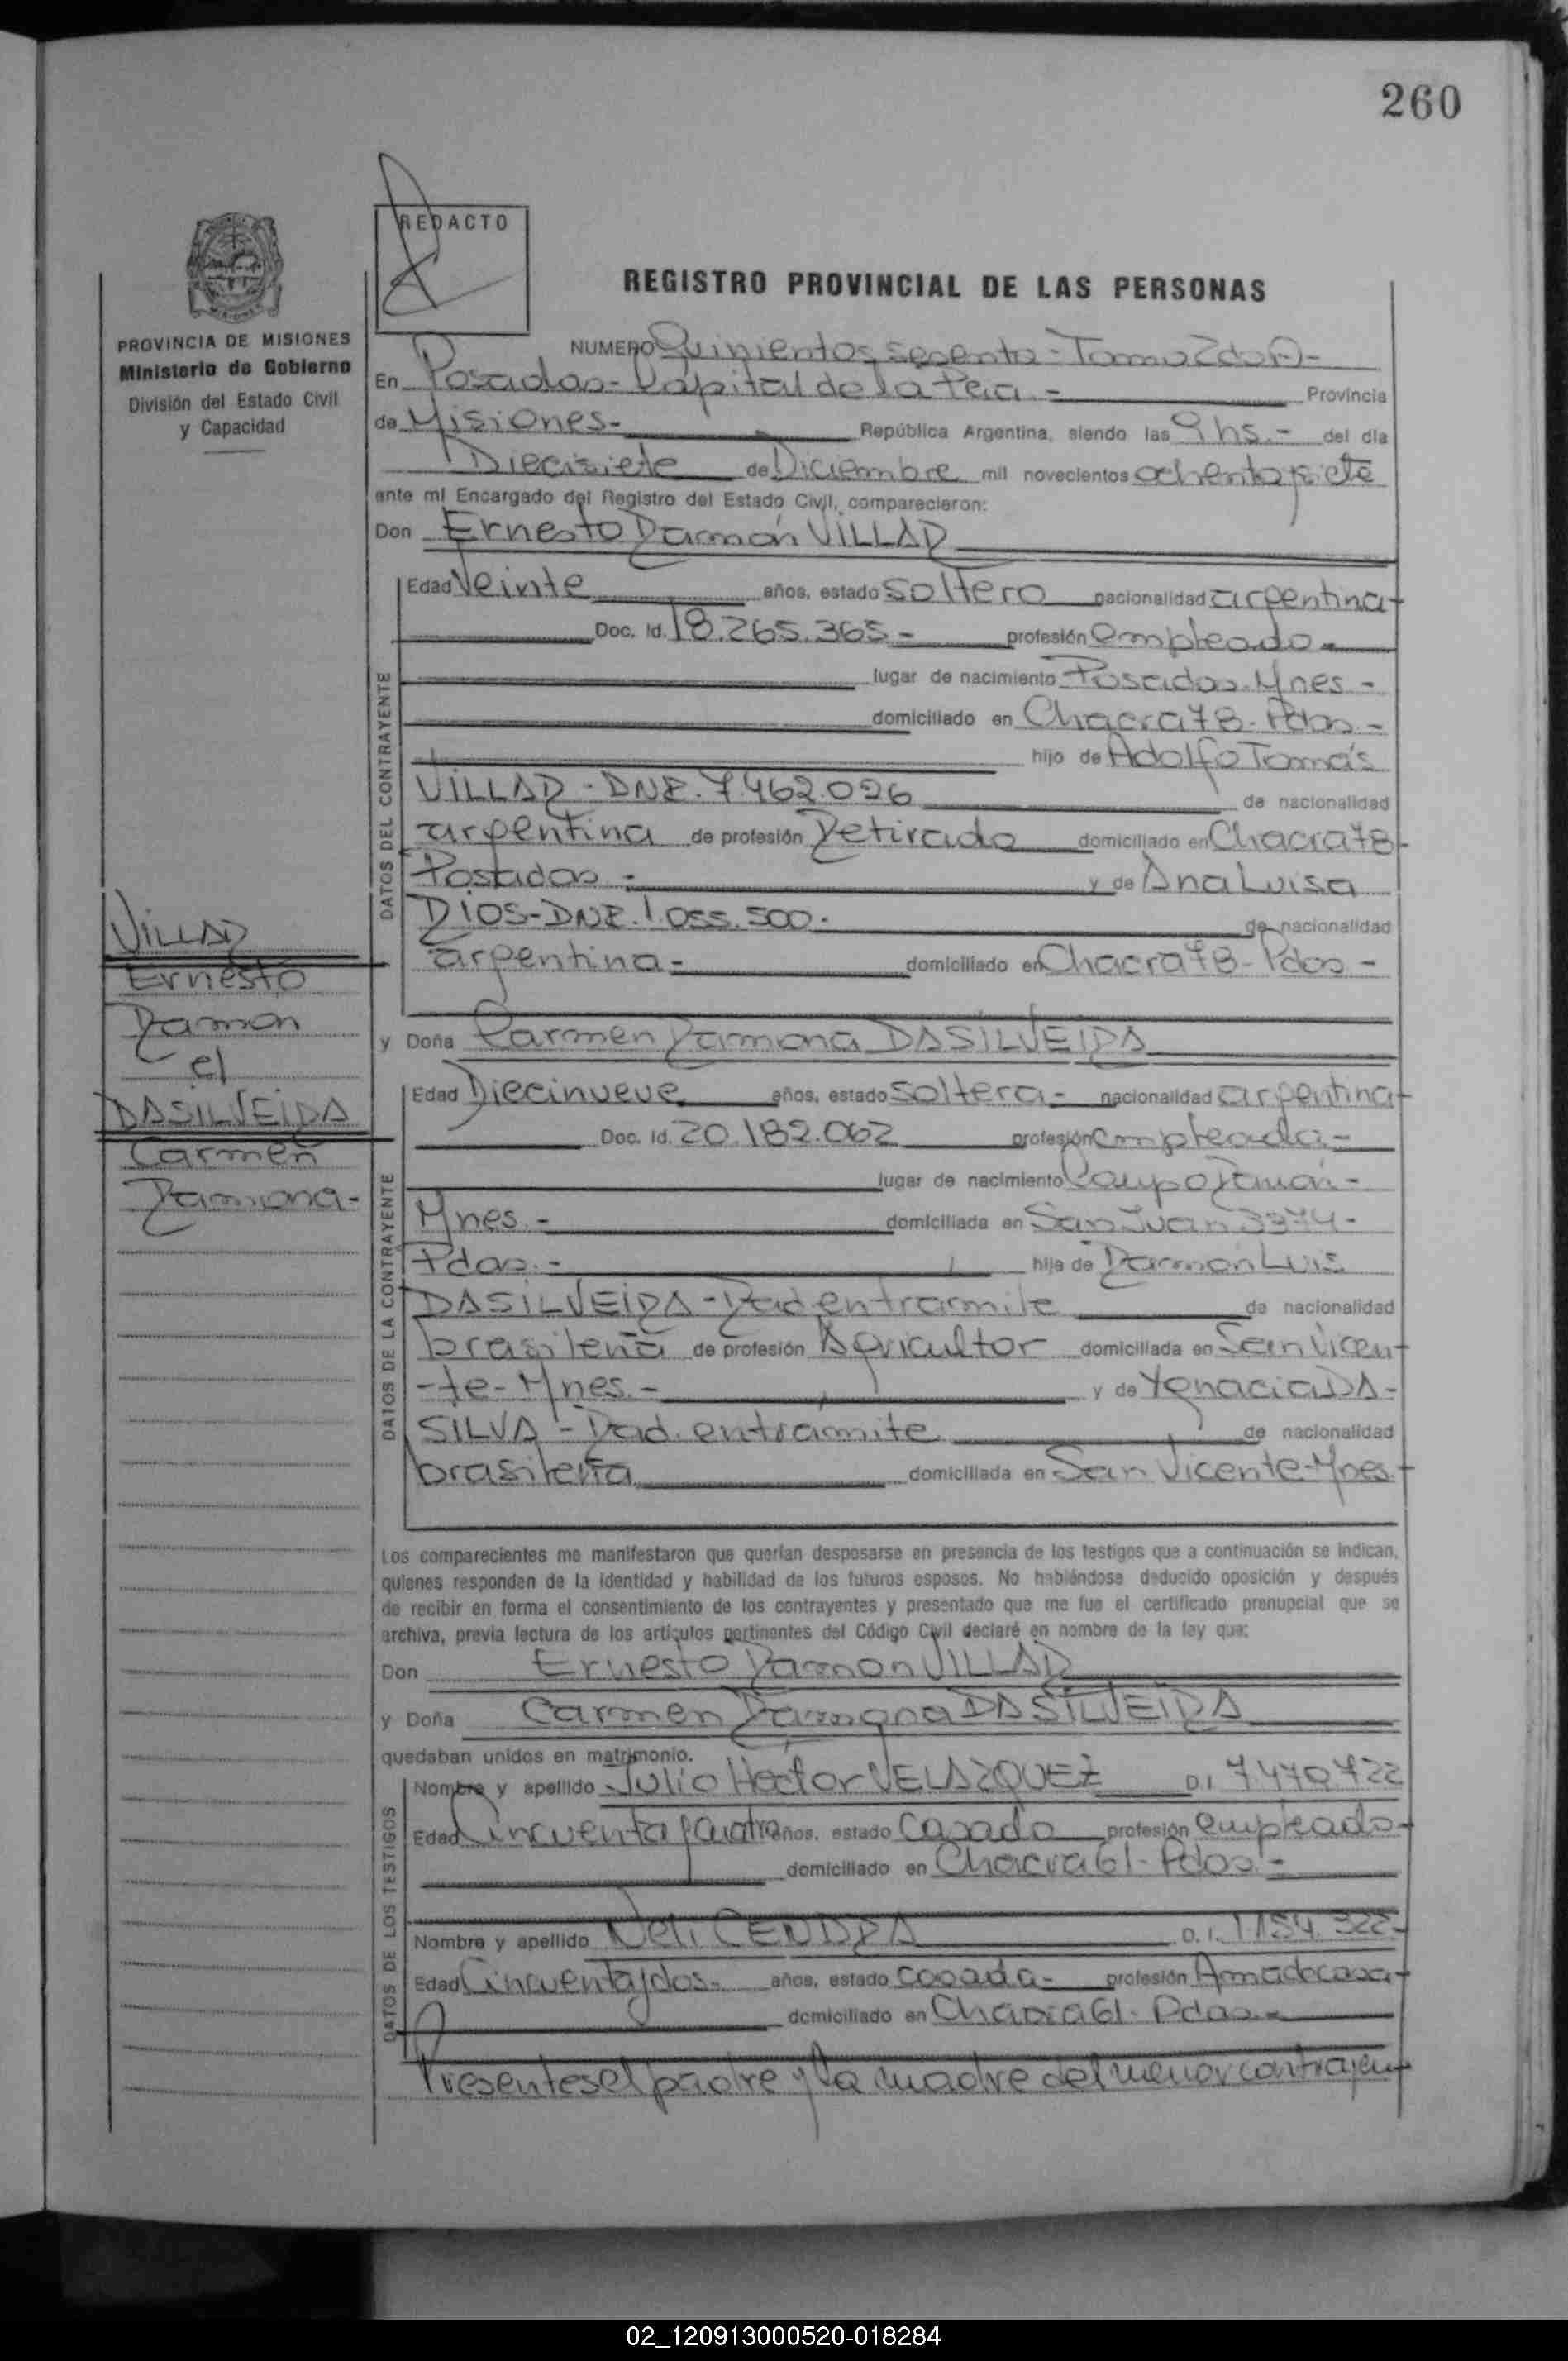 260
REDACTO
REGISTRO PROVINCIAL DE LAS PERSONAS
PROVINCIA DE MISIONES
Ministerio de Gobierno
División del Estado Civil
y Capacidad
NUMERO Quinientos sesenta - Tomo 2do
En Posadas - Capital de la Pcia. - Provincia
de Misiones - República Argentina, siendo las 9 hs. - del día
Diecisiete de Diciembre mil novecientos ochenta y siete
ante mí Encargado del Registro del Estado Civil, comparecieron:
Don Ernesto Ramón VILLAR
Edad Veinte años, estado soltero nacionalidad argentina
Doc. Id. 18.265.365 - profesión empleado -
lugar de nacimiento Posadas. Mnes -
domiciliado en Chacra 78 - Pdas -
hijo de Adolfo Tomás
VILLAR - DNI. 7.462.026 de nacionalidad
argentina de profesión Retirado domiciliado en Chacra 78 -
Posadas - y de Ana Luisa
RIOS - DNI. 1.055.500 - de nacionalidad
argentina - domiciliado en Chacra 78 - Pdas -
DATOS DEL CONTRAYENTE
VILLAR
Ernesto
Ramon
c/
DASILVEIRA
Carmen
Ramona -
y Doña Carmen Ramona DASILVEIRA
Edad Diecinueve años, estado soltera - nacionalidad argentina
Doc. Id. 20.182.062 profesión empleada -
lugar de nacimiento Campo Ramón -
Mnes - domiciliada en San Juan 3374 -
Pdas. - hija de Ramón Luis
DASILVEIRA - Rad en tramite de nacionalidad
brasileña de profesión Agricultor domiciliada en San Vicen-
-te - Mnes. - y de Ygnacia DA-
SILVA - Rad. en tramite de nacionalidad
brasileña domiciliada en San Vicente - Mnes.
DATOS DE LA CONTRAYENTE
Los comparecientes me manifestaron que querían desposarse en presencia de los testigos que a continuación se indican,
quienes responden de la identidad y habilidad de los futuros esposos. No habiéndose deducido oposición y después
de recibir en forma el consentimiento de los contrayentes y presentado que me fue el certificado prenupcial que se
archiva, previa lectura de los artículos pertinentes del Código Civil declaré en nombre de la ley que:
Don Ernesto Ramon VILLAR
y Doña Carmen Ramona DASILVEIRA
quedaban unidos en matrimonio.
Nombre y apellido Julio Hector VELAZQUEZ D.I. 7470722
Edad Cincuenta y cuatro años, estado casado profesión empleado -
domiciliado en Chacra 61 - Pdas. -
Nombre y apellido Neli CENDRA D.I. 1154.322 -
Edad Cincuenta y dos - años, estado casada - profesión Ama de casa
domiciliado en Chacra 61 - Pdas. -
DATOS DE LOS TESTIGOS
Presentes el padre y la madre del menor contrayen
02_120913000520-018284